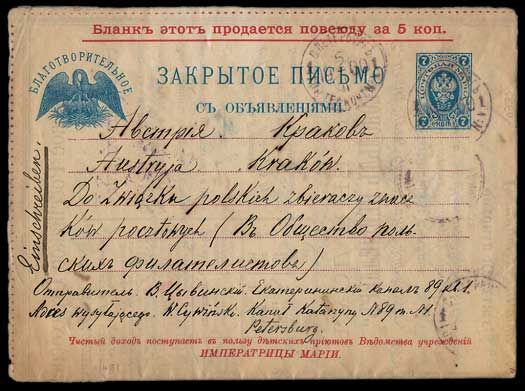 Бланкъ этотъ продается повсюду за 5 коп.
БЛАГОТВОРИТЕЛЬНОЕ
ЗАКРЫТОЕ ПИСЬМО
СЪ ОБЪЯВЛЕНІЯМИ
7 7
7 7
Австрія. Краковъ
Austryja. Kraków.
Do Związku polskich zbieraczy znacz
ków pocztowych (Въ Общество поль-
скихъ филателистовъ)
Einschreiben.
Отправитель. В. Цывинскій. Екатерининскій каналъ 89 кв. 1.
Adres wysyłającego. W Cywiński. Kanał Katarzyny N 89 m. 1.
Petersburg.
Чистый доходъ поступаетъ въ пользу дѣтскихъ пріютовъ Вѣдомства учрежденій
ИМПЕРАТРИЦЫ МАРІИ.